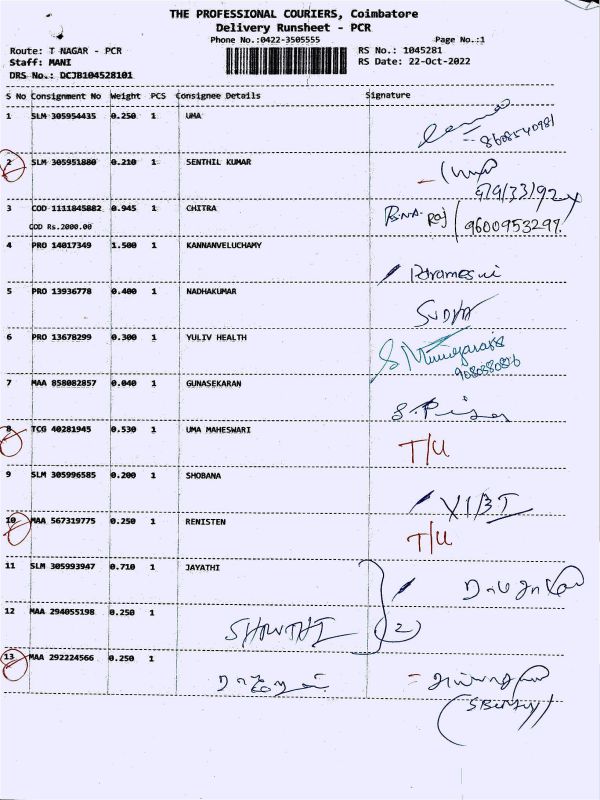 THE PROFESSIONAL COURIERS, Coimbatore
Delivery Runsheet - PCR
Phone No.:0422-3505555 Page No.:1
Route: T NAGAR - PCR RS No.: 1045281
Staff: MANI RS Date: 22-Oct-2022
DRS No.: DCJB104528101
S No Consignment No Weight PCS Consignee Details Signature
1 SLM 305954435 0.250 1 UMA
8608540981
2 SLM 305951880 0.210 1 SENTHIL KUMAR
3 COD 1111845882 0.945 1 CHITRA Raj 9600953299
COD Rs.2000.00
4 PRO 14017349 1.500 1 KANNANVELUCHAMY
5 PRO 13936778 0.400 1 NADHAKUMAR
SUDHA
6 PRO 13678299 0.300 1 YULIV HEALTH
7 MAA 858082857 0.040 1 GUNASEKARAN
8 TCG 40281945 0.530 1 UMA MAHESWARI T/U
9 SLM 305996585 0.200 1 SHOBANA
10 MAA 567319775 0.250 1 RENISTEN T/U
11 SLM 305993947 0.710 1 JAYATHI
12 MAA 294055198 0.250 1 2
13 MAA 292224566 0.250 1